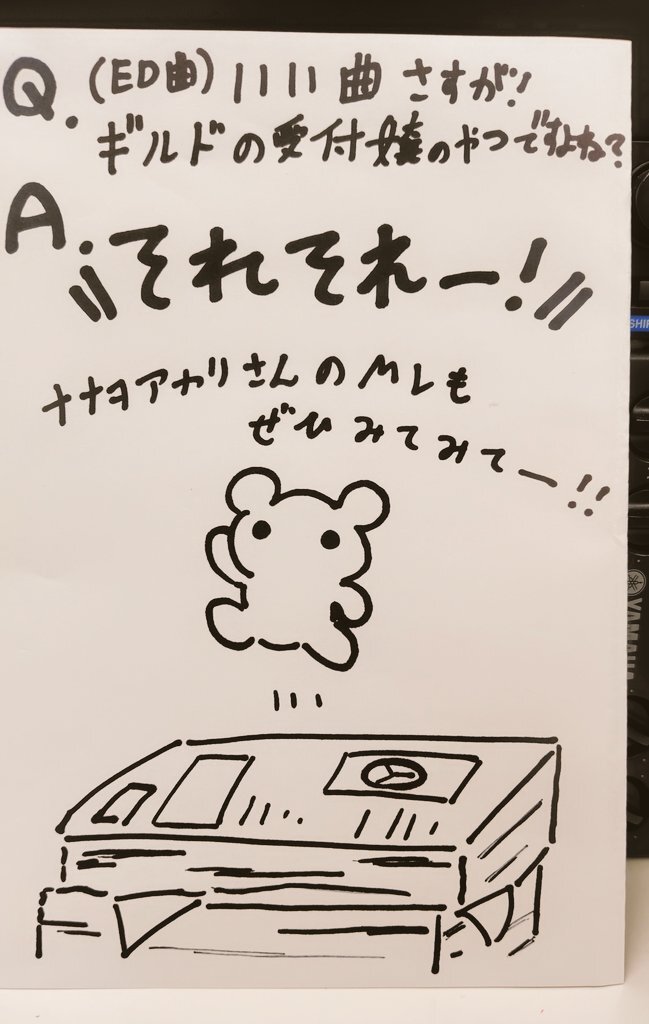 Q. (ED曲) いい曲 さすが!
ギルドの受付嬢のやつですよね?
A. それそれー!
ナナヲアカリさんのMVも
ぜひみてみてー!!
SHIF
YAMAHA